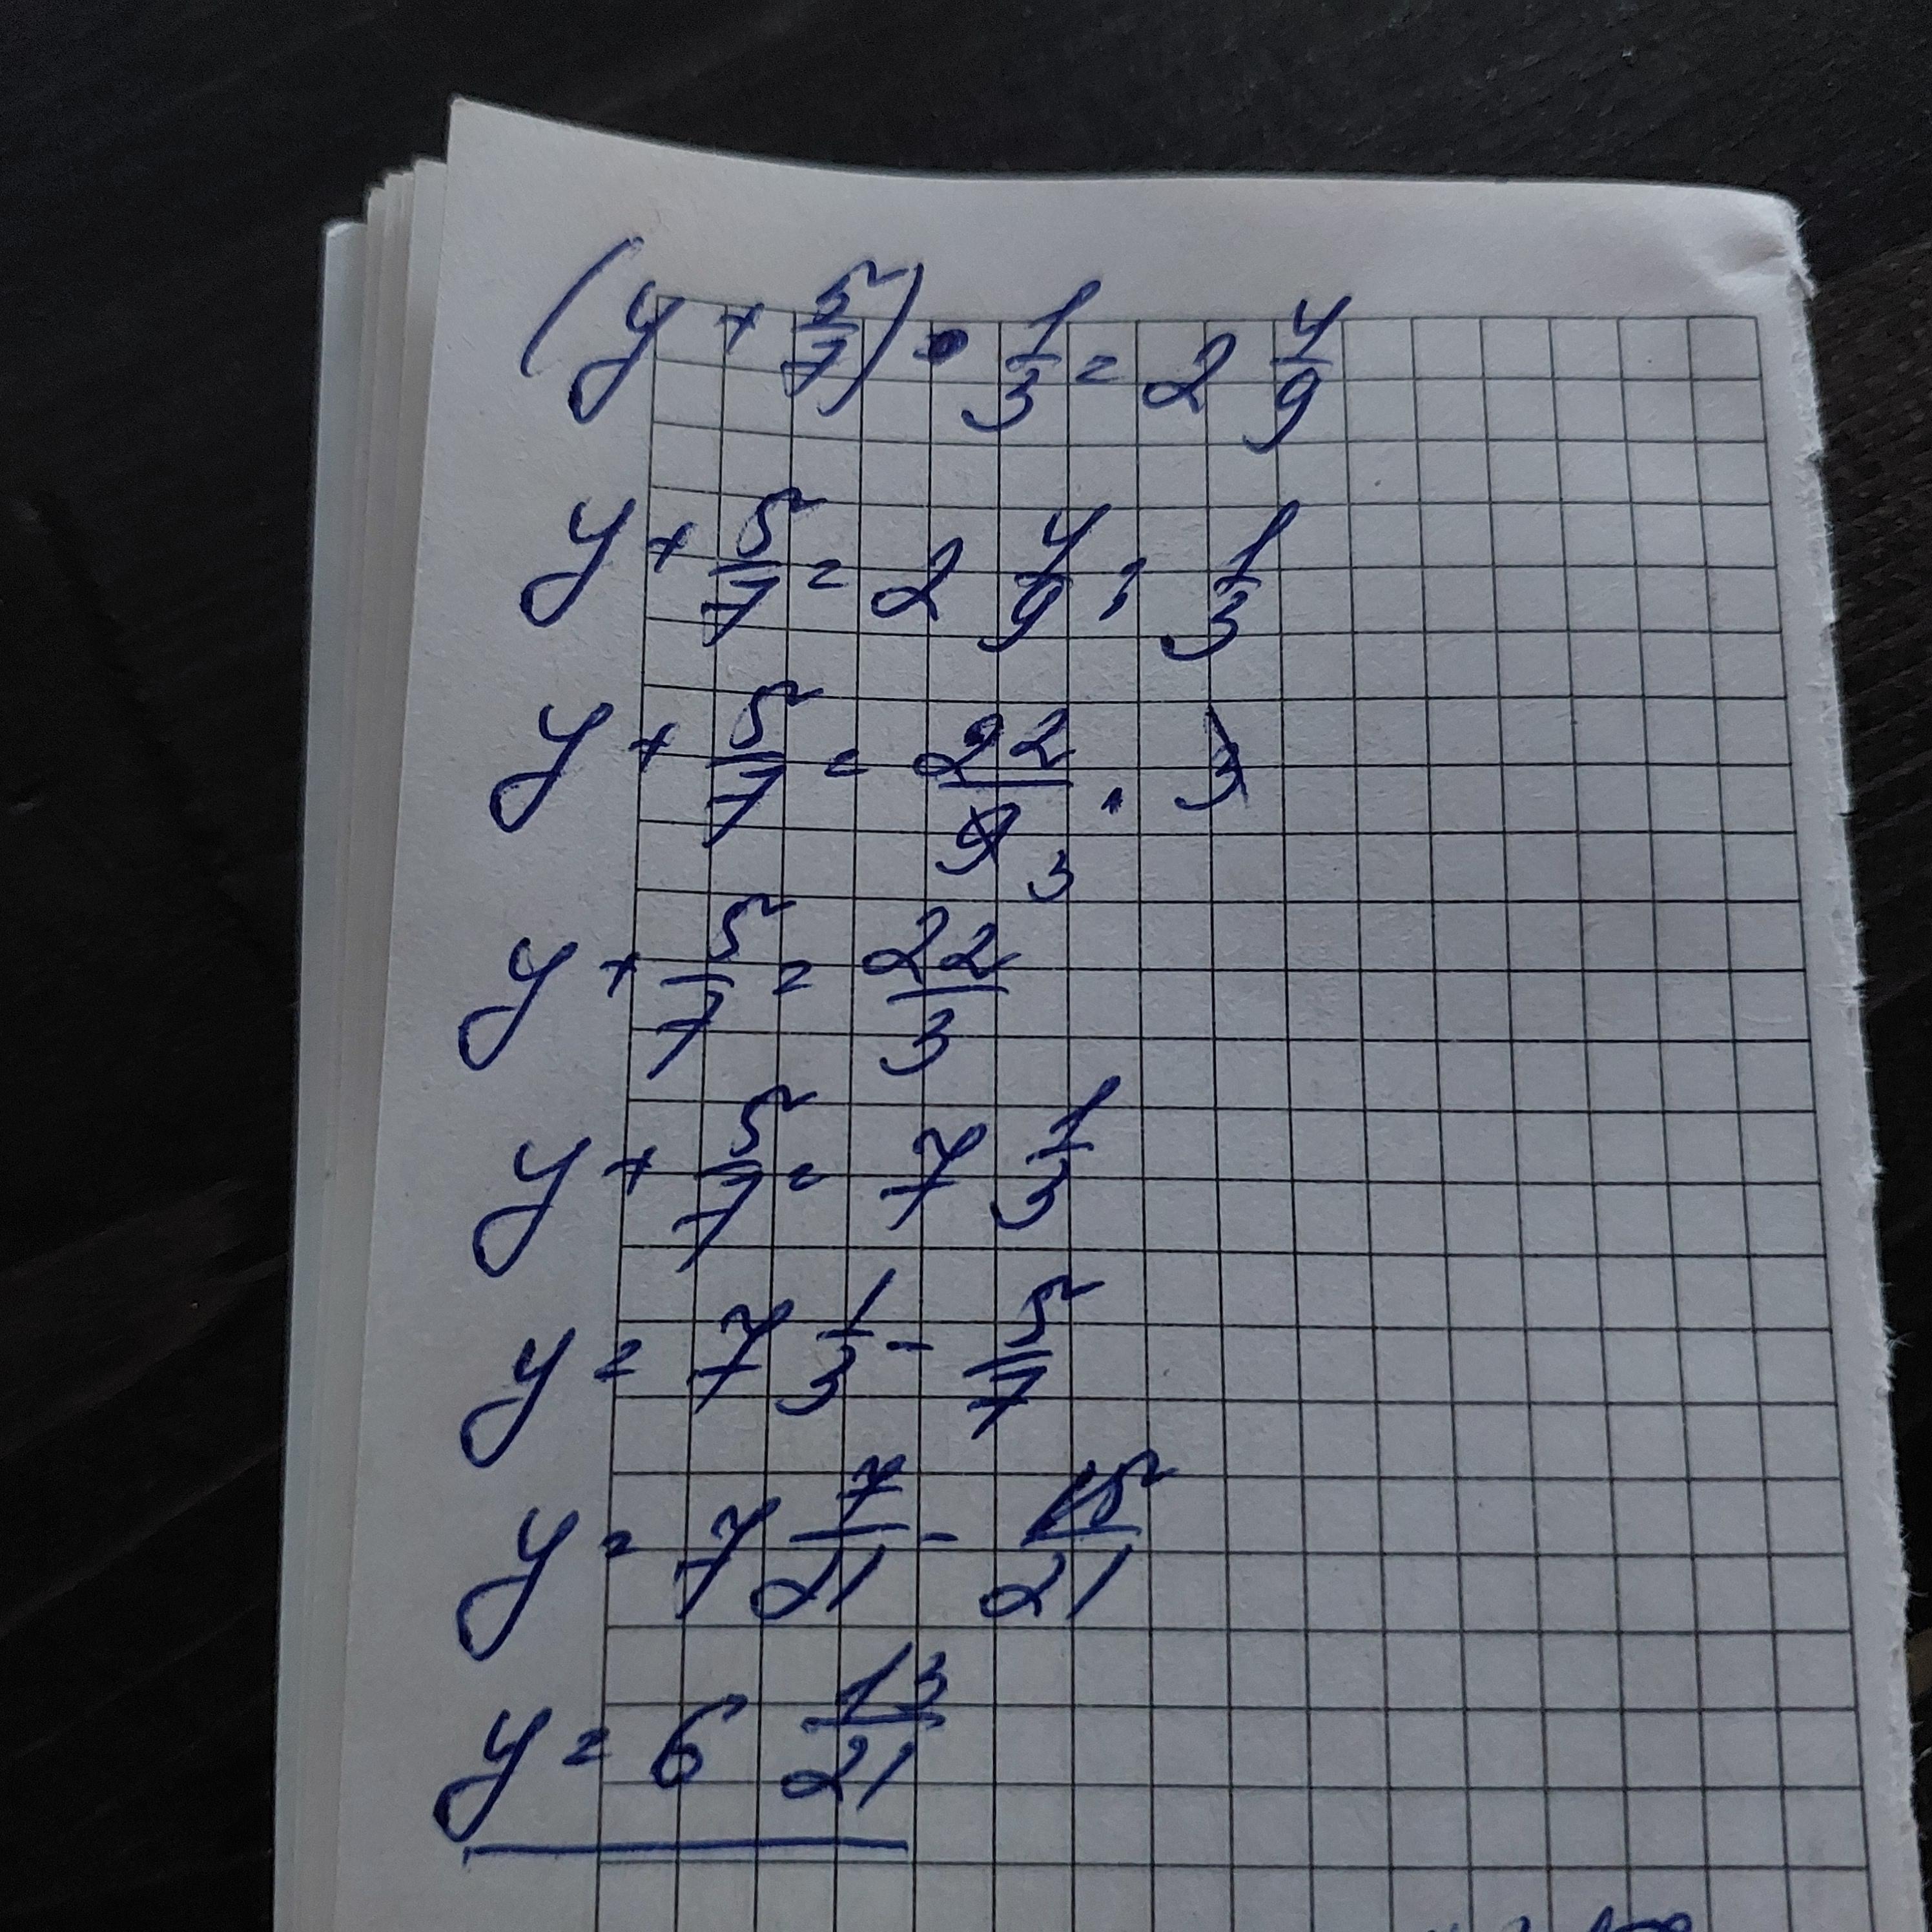 (y + 5/7) · 1/3 = 2 4/9
y + 5/7 = 2 4/9 : 1/3
y + 5/7 = 22/9 3 · 3
y + 5/7 = 22/3
y + 5/7 = 7 1/3
y = 7 1/3 - 5/7
y = 7 7/21 - 15/21
y = 6 13/21